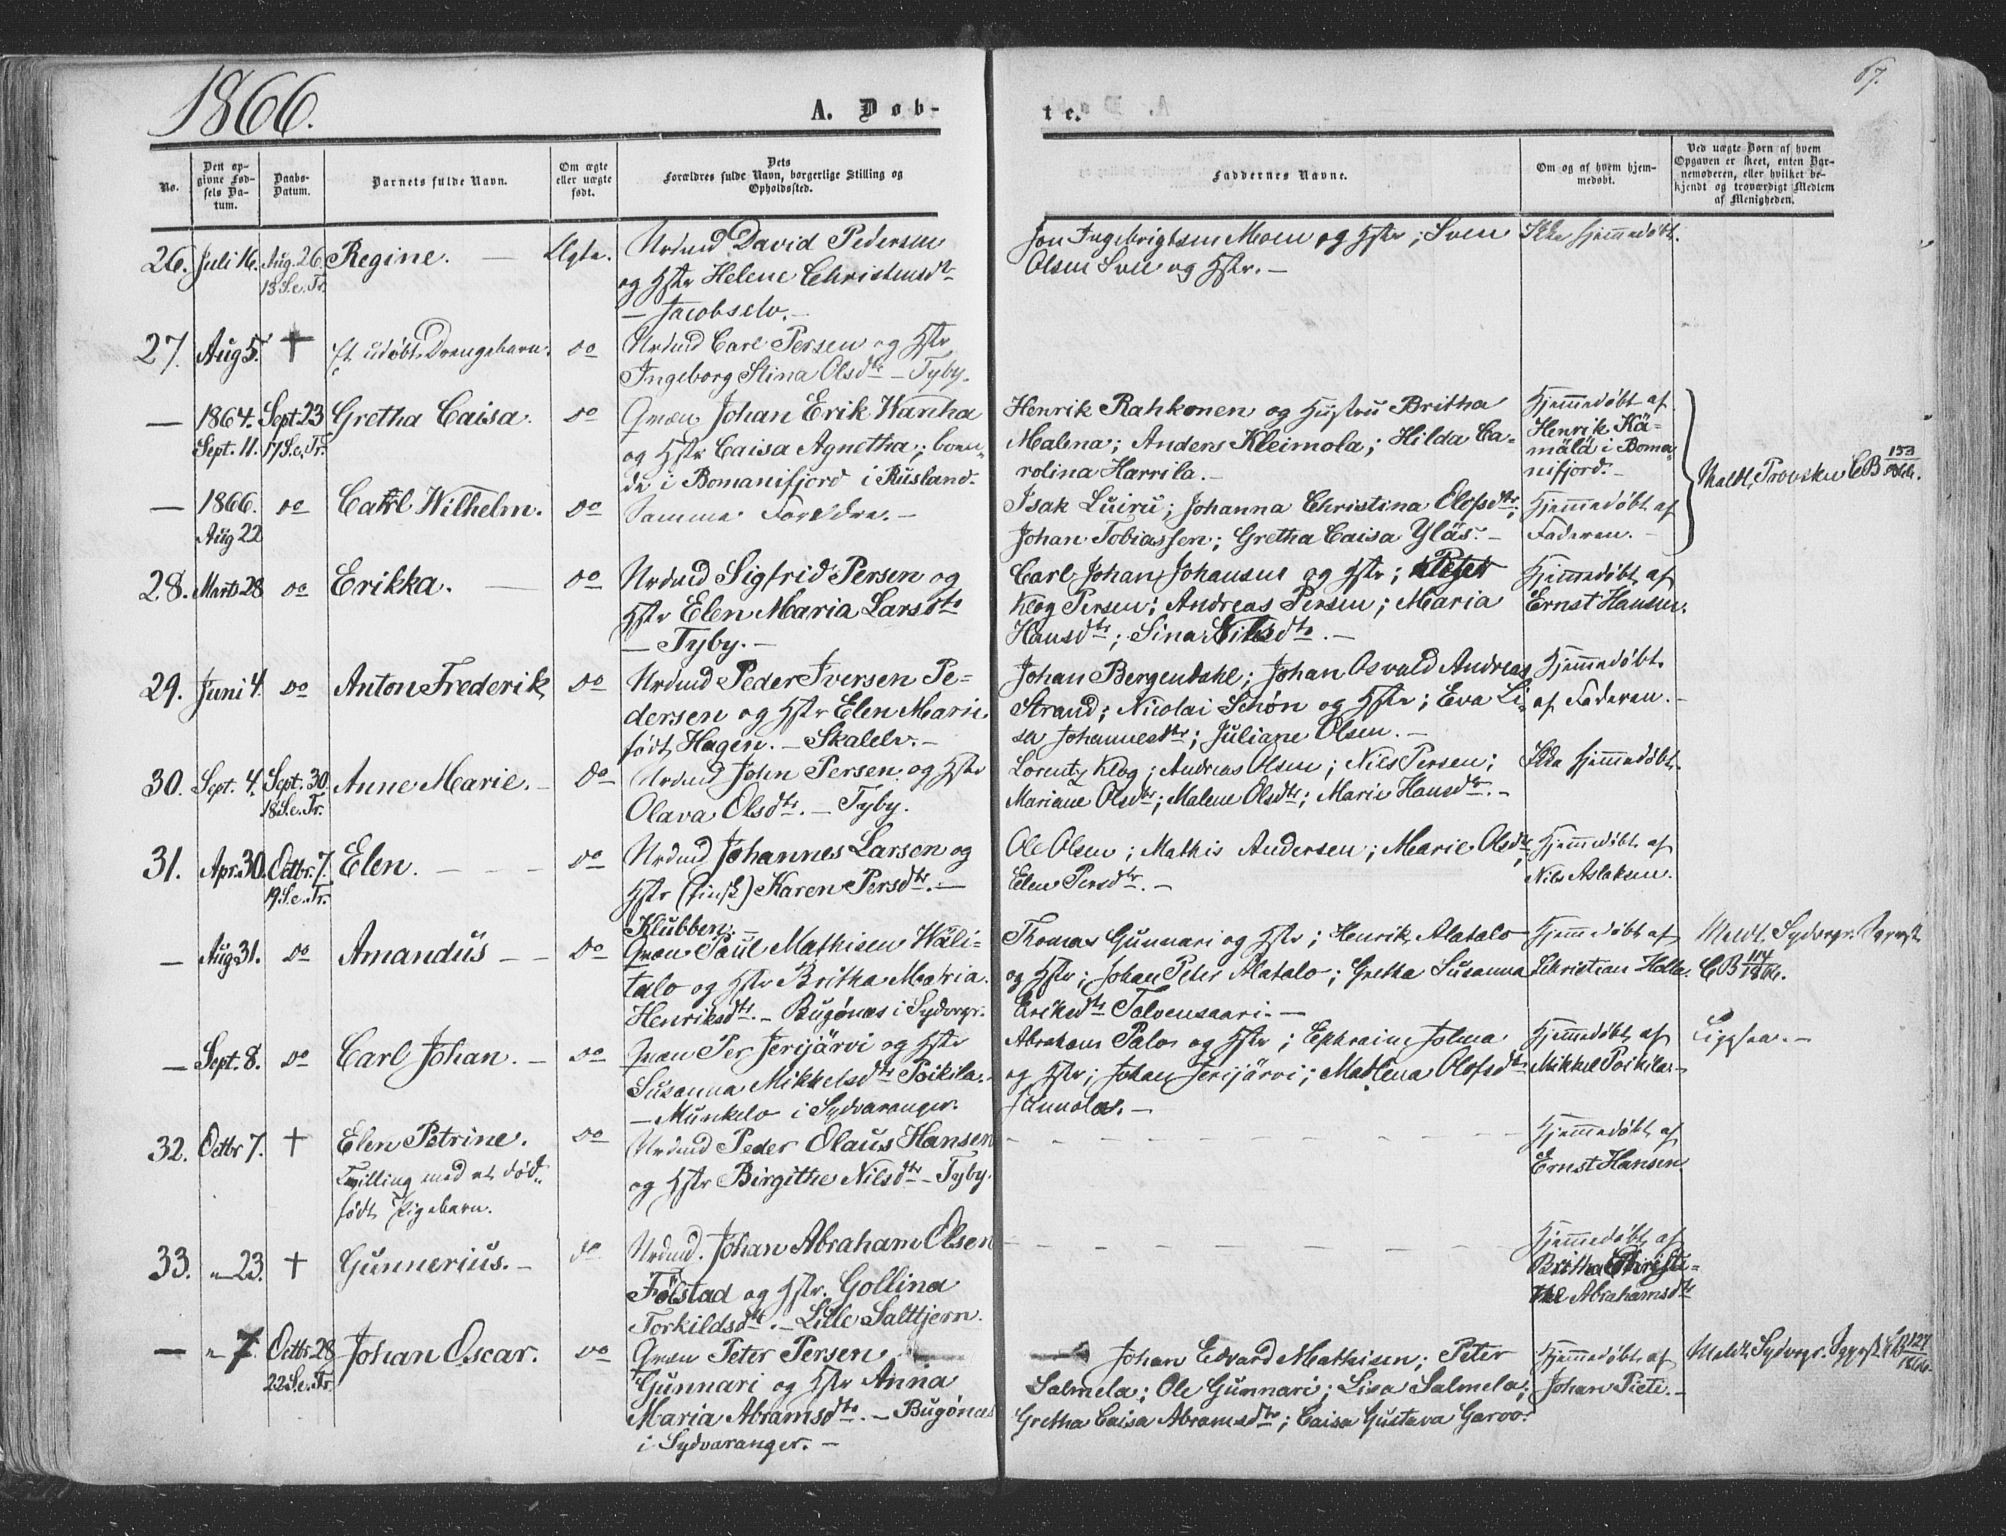 1866.
A. Døb-
te.
67.
No.
Den opgivne Fødsels Datum.
Daabs-Datum.
Barnets fulde Navn.
Om ægte eller uægte født.
Dets Forældres fulde Navn, borgerlige Stilling og Opholdssted.
Faddernes Navne.
Om og af hvem hjemmedøbt.
Ved uægte Børn af hvem Opgaven er skeet, enten Barnemoderen, eller hvilket bekjendt og troværdigt Medlem af Menigheden.
26. Juli 16. Aug. 26 Regine. — Ægte. Nrdmd David Pedersen
13 S.e.Tr. og Hstr Helene Christensdtr
— Jacobselv. —
Jon Ingebrigtsen Moen og Hstr; Sven
Olsen Svee og Hstr. —
Ikke hjemmedøbt.
27. Aug 5. † Et udøbt Drengebarn. do Nrdmd Carl Persen og Hstr
Ingeborg Stina Olsdtr — Tyby.
— 1864. Sept. 23 Gretha Caisa. do Qvæn Johan Erik Wanha
Sept. 11. 17 S.e.Tr. og Hstr Caisa Agnetha; boen-
de i Bomanifjord i Rusland.
Henrik Rahkonen og Hustru Britha
Malena; Anders Kleimola; Hilda Ca-
rolina Harrila. —
Hjemmedøbt af
Henrik Kä-
mälä i Boma-
nifjord. —
Meldt Provsten CB 153/1866.
— 1866. do Carl Wilhelm. do Samme Forældre. —
Aug 22
Isak Luiru; Johanna Christina Olofsdtr;
Johan Tobiassen; Gretha Caisa Yläs. —
Hjemmedøbt af
Faderen. —
28. Marts 28 do Erikka. — do Nrdmd Sigfrid Persen og
Hstr Elen Maria Larsdtr
— Tyby. —
Carl Johan Johansen og Hstr; Peter
Klog Persen; Andreas Persen; Maria
Hansdtr; Sina Nilsdtr. —
Hjemmedøbt af
Ernst Hansen.
29. Juni 4. do Anton Frederik do Nrdmd Peder Iversen Pe-
dersen og Hstr Elen Marie
født Hagen. — Skalelv. —
Johan Bergendahl; Johan Osvald Andreas
Strand; Nicolai Schøn og Hstr; Eva Li-
sa Johannesdtr; Juliane Olsen. —
Hjemmedøbt
af Faderen. —
30. Sept. 4. Sept. 30 Anne Marie. — do Nrdmd John Persen og Hstr
18 S.e.Tr. Olava Olsdtr. — Tyby.
Lorentz Klog; Andreas Olsen; Nils Persen;
Mariane Olsdtr; Malene Olsdtr; Marie Hansdtr. —
Ikke hjemmedøbt.
31. Apr. 30. Octbr. 7. Elen. — — — do Nrdmd Johannes Larsen og
19 S.e.Tr. Hstr (finsk) Karen Persdtr. —
Klubben. —
Ole Olsen; Mathis Andersen; Marie Olsdtr;
Elen Persdtr. —
Hjemmedøbt af
Nils Aslaksen.
— Aug. 31. do Amandus — — do Qvæn Paul Mathisen Wäli-
talo og Hstr Britha Maria
Henriksdtr. — Bugønæs i Sydvrgr.
Thomas Gunnari og Hstr; Henrik Alatalo
og Hstr; Johan Peter Alatalo; Gretha Susanna
Eriksdtr Talvensaari. —
Hjemmedøbt af
Christian Halla.
Meldt Sydvrgr. Sgprst
CB 114/1866.
— Sept. 8. do Carl Johan. — do Qvæn Per Jerijärvi og Hstr
Susanna Mikkelsdtr Poikila.
— Munkelv i Sydvaranger.
Abraham Palo og Hstr; Ephraim Jolma
og Hstr; Johan Jerijärvi; Madlena Olofsdtr
Hjemmedøbt af
Mikkel Poikila. —
Ligesaa. —
32. Octbr 7. † Elen Petrine. do Nrdmd Peder Olaus Hansen
Tvilling med et død- og Hstr Birgithe Nilsdtr — Tyby.
født Pigebarn.
Hjemmedøbt af
Ernst Hansen
33. " 23. † Gunnerius. — do Nrdmd. Johan Abraham Olsen
Følstad og Hstr. Gollina
Torkildsdtr. — Lille Saltjern.
Hjemmedøbt af
Britha Christi-
ne Abrahamsdtr
— " 7. Octbr. 28 Johan Oscar. do Qvæn Peter Persen
22 S.e.Tr. Gunnari og Hstr Anna
Maria Abramsdtr. — Bugønæs
i Sydvaranger. —
Johan Edvard Mathisen; Peter
Salmela; Ole Gunnari; Lisa Salmela;
Gretha Caisa Abramsdtr; Caisa Gustava Garvo.
Hjemmedøbt af
Johan Pieti. —
Meldt Sydvrgr. Sgprst CB 127/1866.